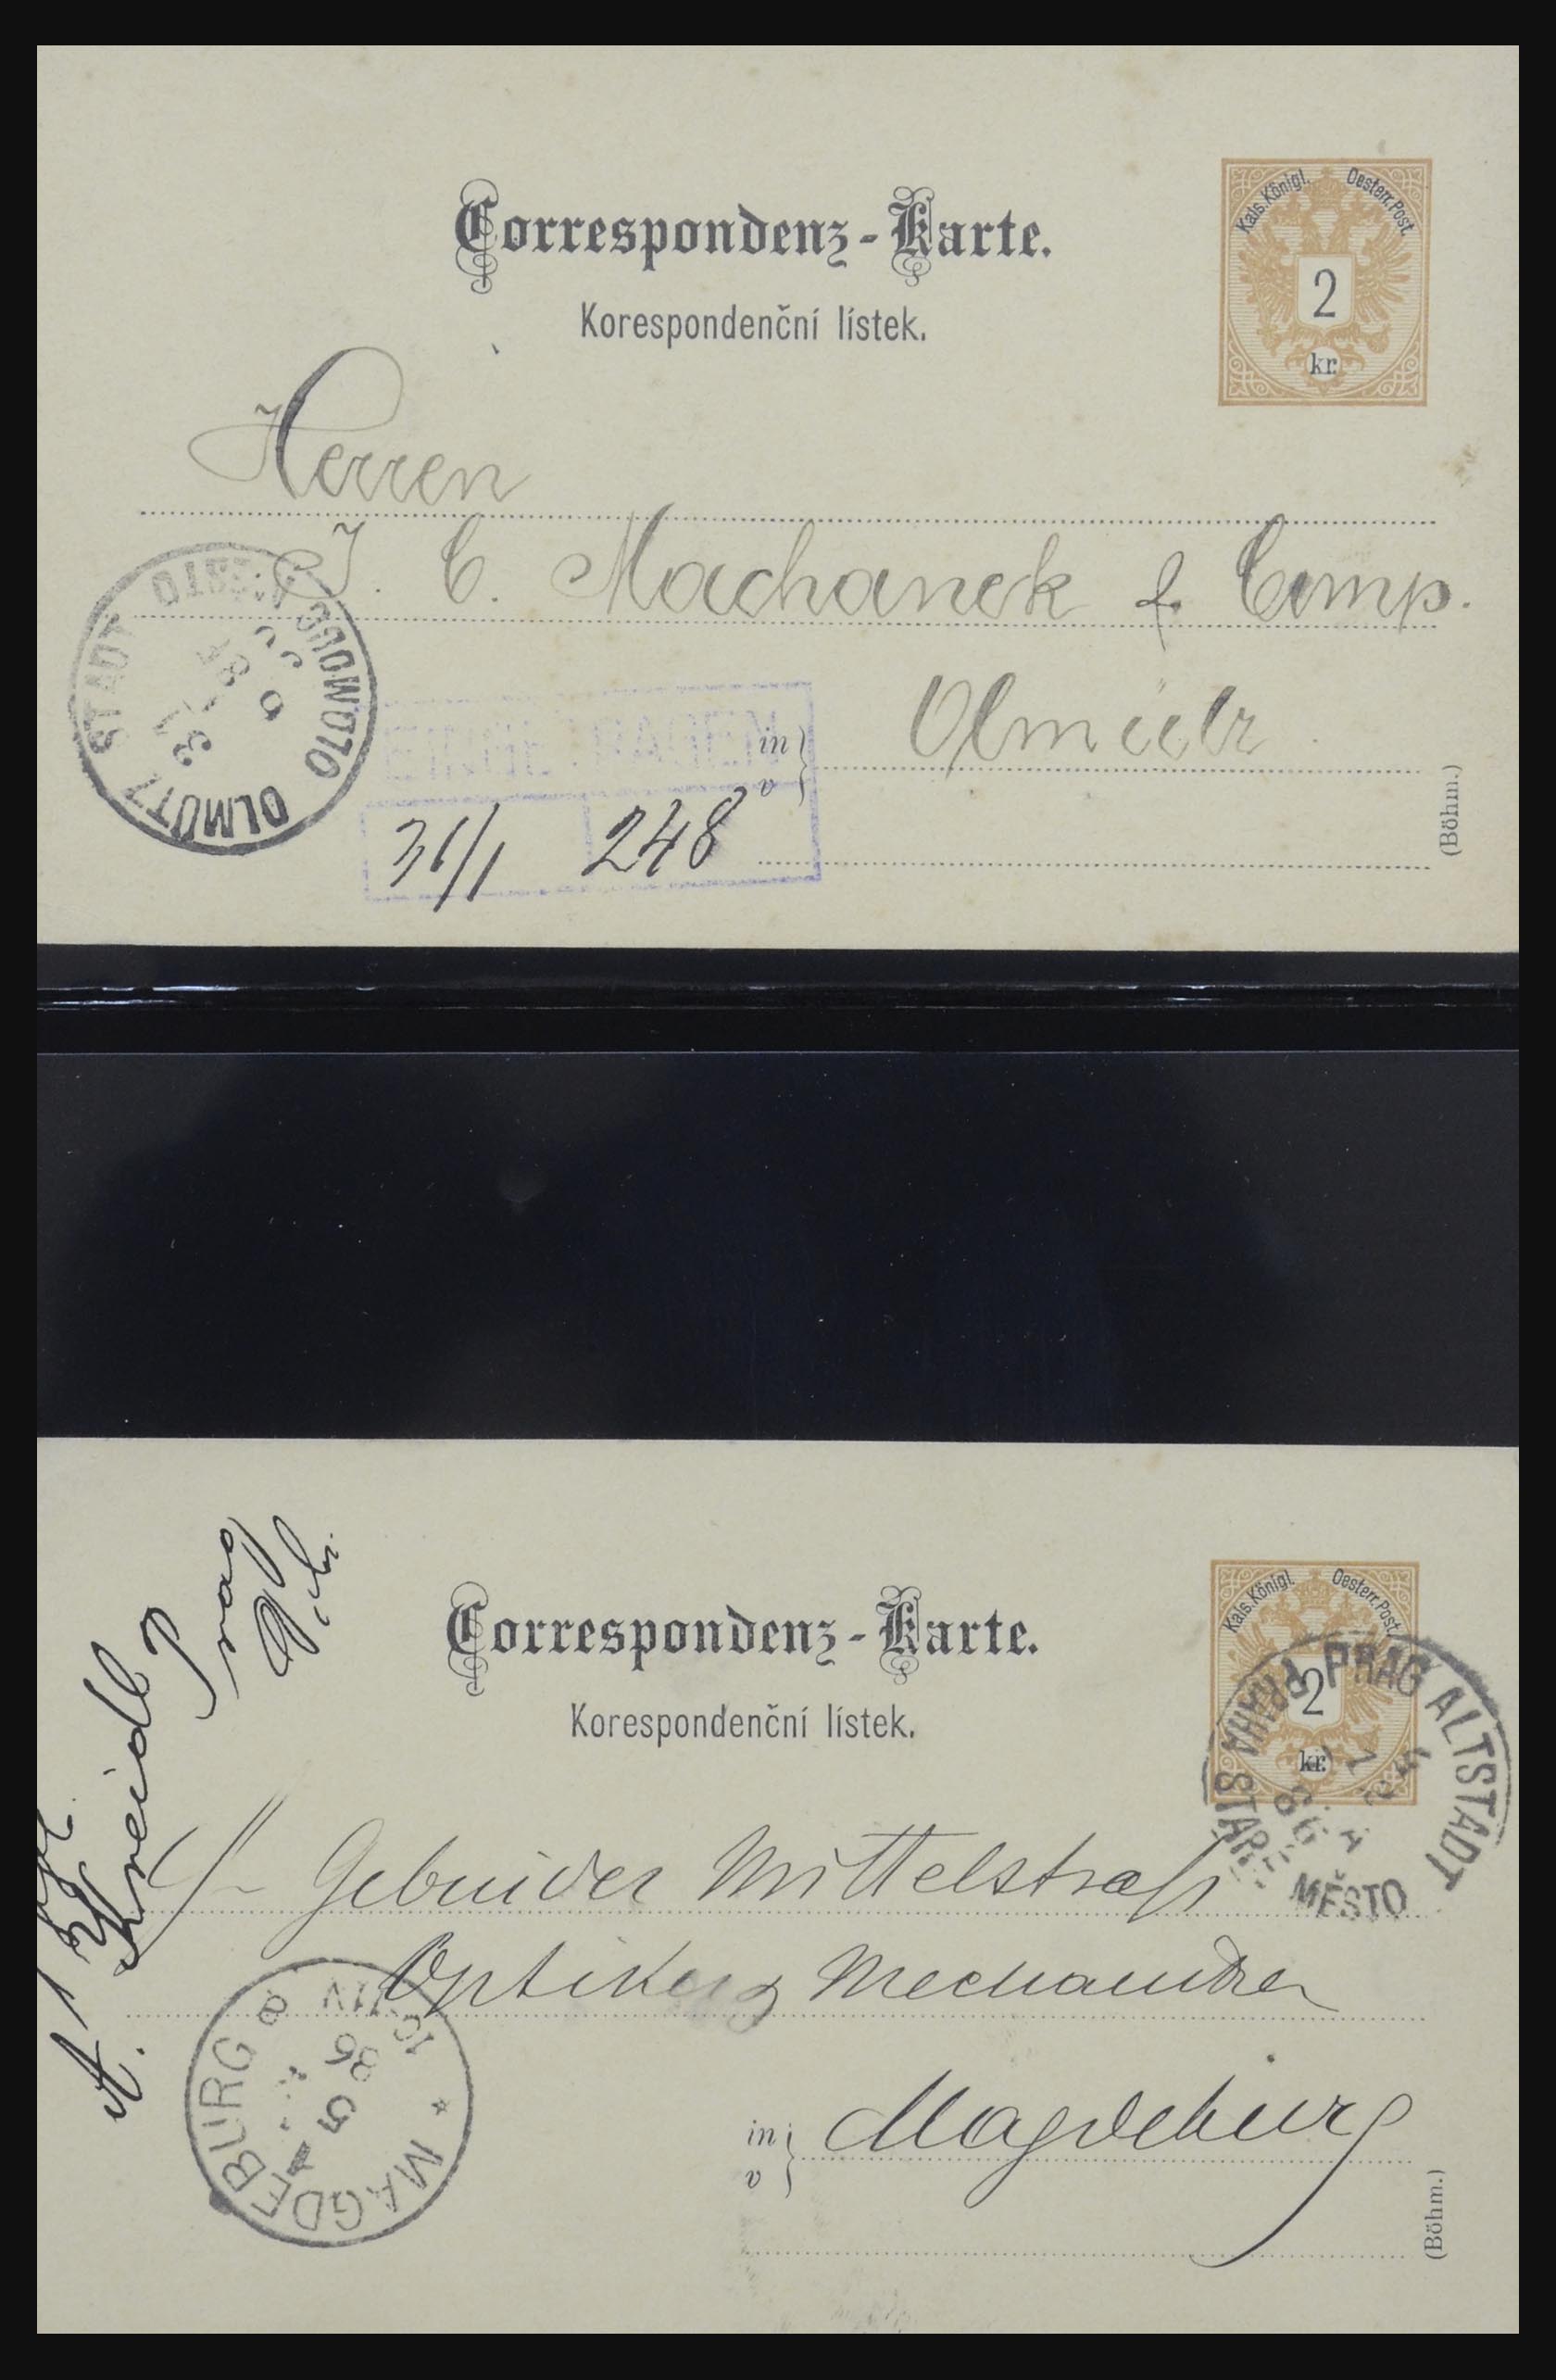 Correspondenz-Karte.
Korespondenční lístek.
Kais. Königl. Oesterr. Post.
2
kr.
Herren
J. C. Machanek & Comp.
in
v
Olmütz
OLMÜTZ STADT
OLOMOUC MĚSTO
31
1
EINGETRAGEN
31/1 248
(Böhm.)
Correspondenz-Karte.
Korespondenční lístek.
Kais. Königl. Oesterr. Post.
2
kr.
PRAG ALTSTADT
PRAHA STARÉ MĚSTO
4
86
A. Kreidl
Prag
Gebrüder Mittelstrass
Optiker & Mechaniker
in
v
Magdeburg
* MAGDEBURG 8
5
86
10-11V
(Böhm.)